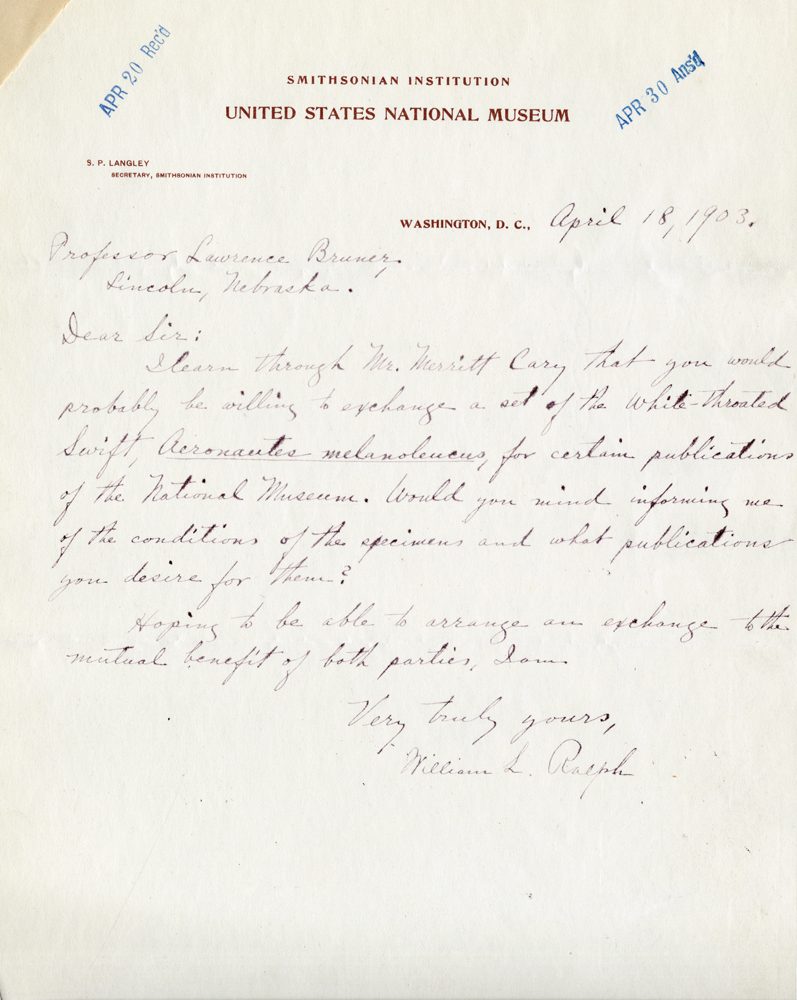 APR 20 Rec'd
APR 30 Ans'd
SMITHSONIAN INSTITUTION
UNITED STATES NATIONAL MUSEUM
S. P. LANGLEY
SECRETARY, SMITHSONIAN INSTITUTION
WASHINGTON, D. C., April 18, 1903.
Professor Lawrence Bruner,
Lincoln, Nebraska.
Dear Sir:
I learn through Mr. Merritt Cary that you would
probably be willing to exchange a set of the White-throated
Swift, Aeronautes melanoleucus, for certain publications
of the National Museum. Would you mind informing me
of the conditions of the specimens and what publications
you desire for them?
Hoping to be able to arrange an exchange to the
mutual benefit of both parties, I am
Very truly yours,
William L. Ralph